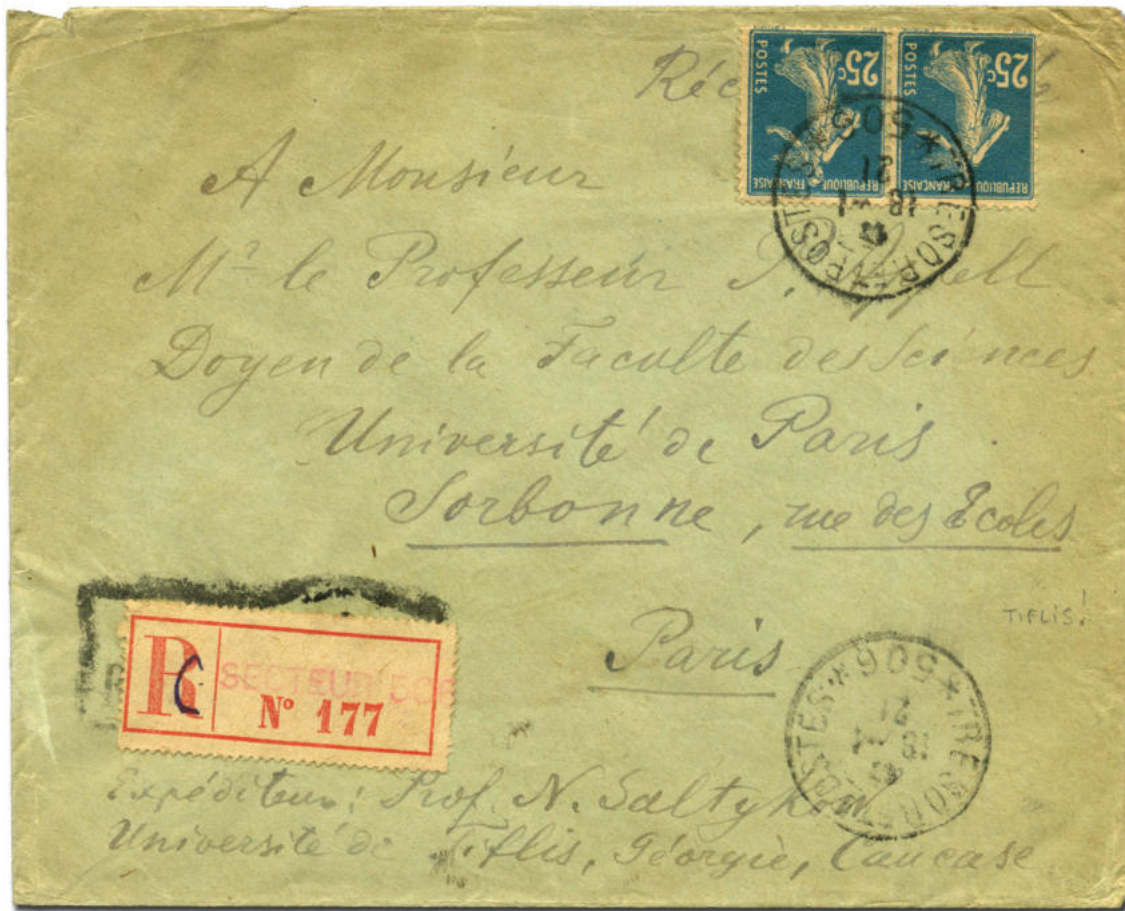 25c 25c
POSTES
RÉPUBLIQUE FRANÇAISE RÉPUBLIQUE FRANÇAISE
TRESOR ET POSTES * 506 *
18
21
A Monsieur
Mr le Professeur P. Appell
Doyen de la Faculte des Sciences
Université de Paris
Sorbonne, rue des Ecoles
TIFLIS!
Paris
R SECTEUR 506
N° 177
TRESOR ET POSTES * 506 *
18
21
Expéditeur: Prof. N. Saltykow
Université de Tiflis, Géorgie, Caucase